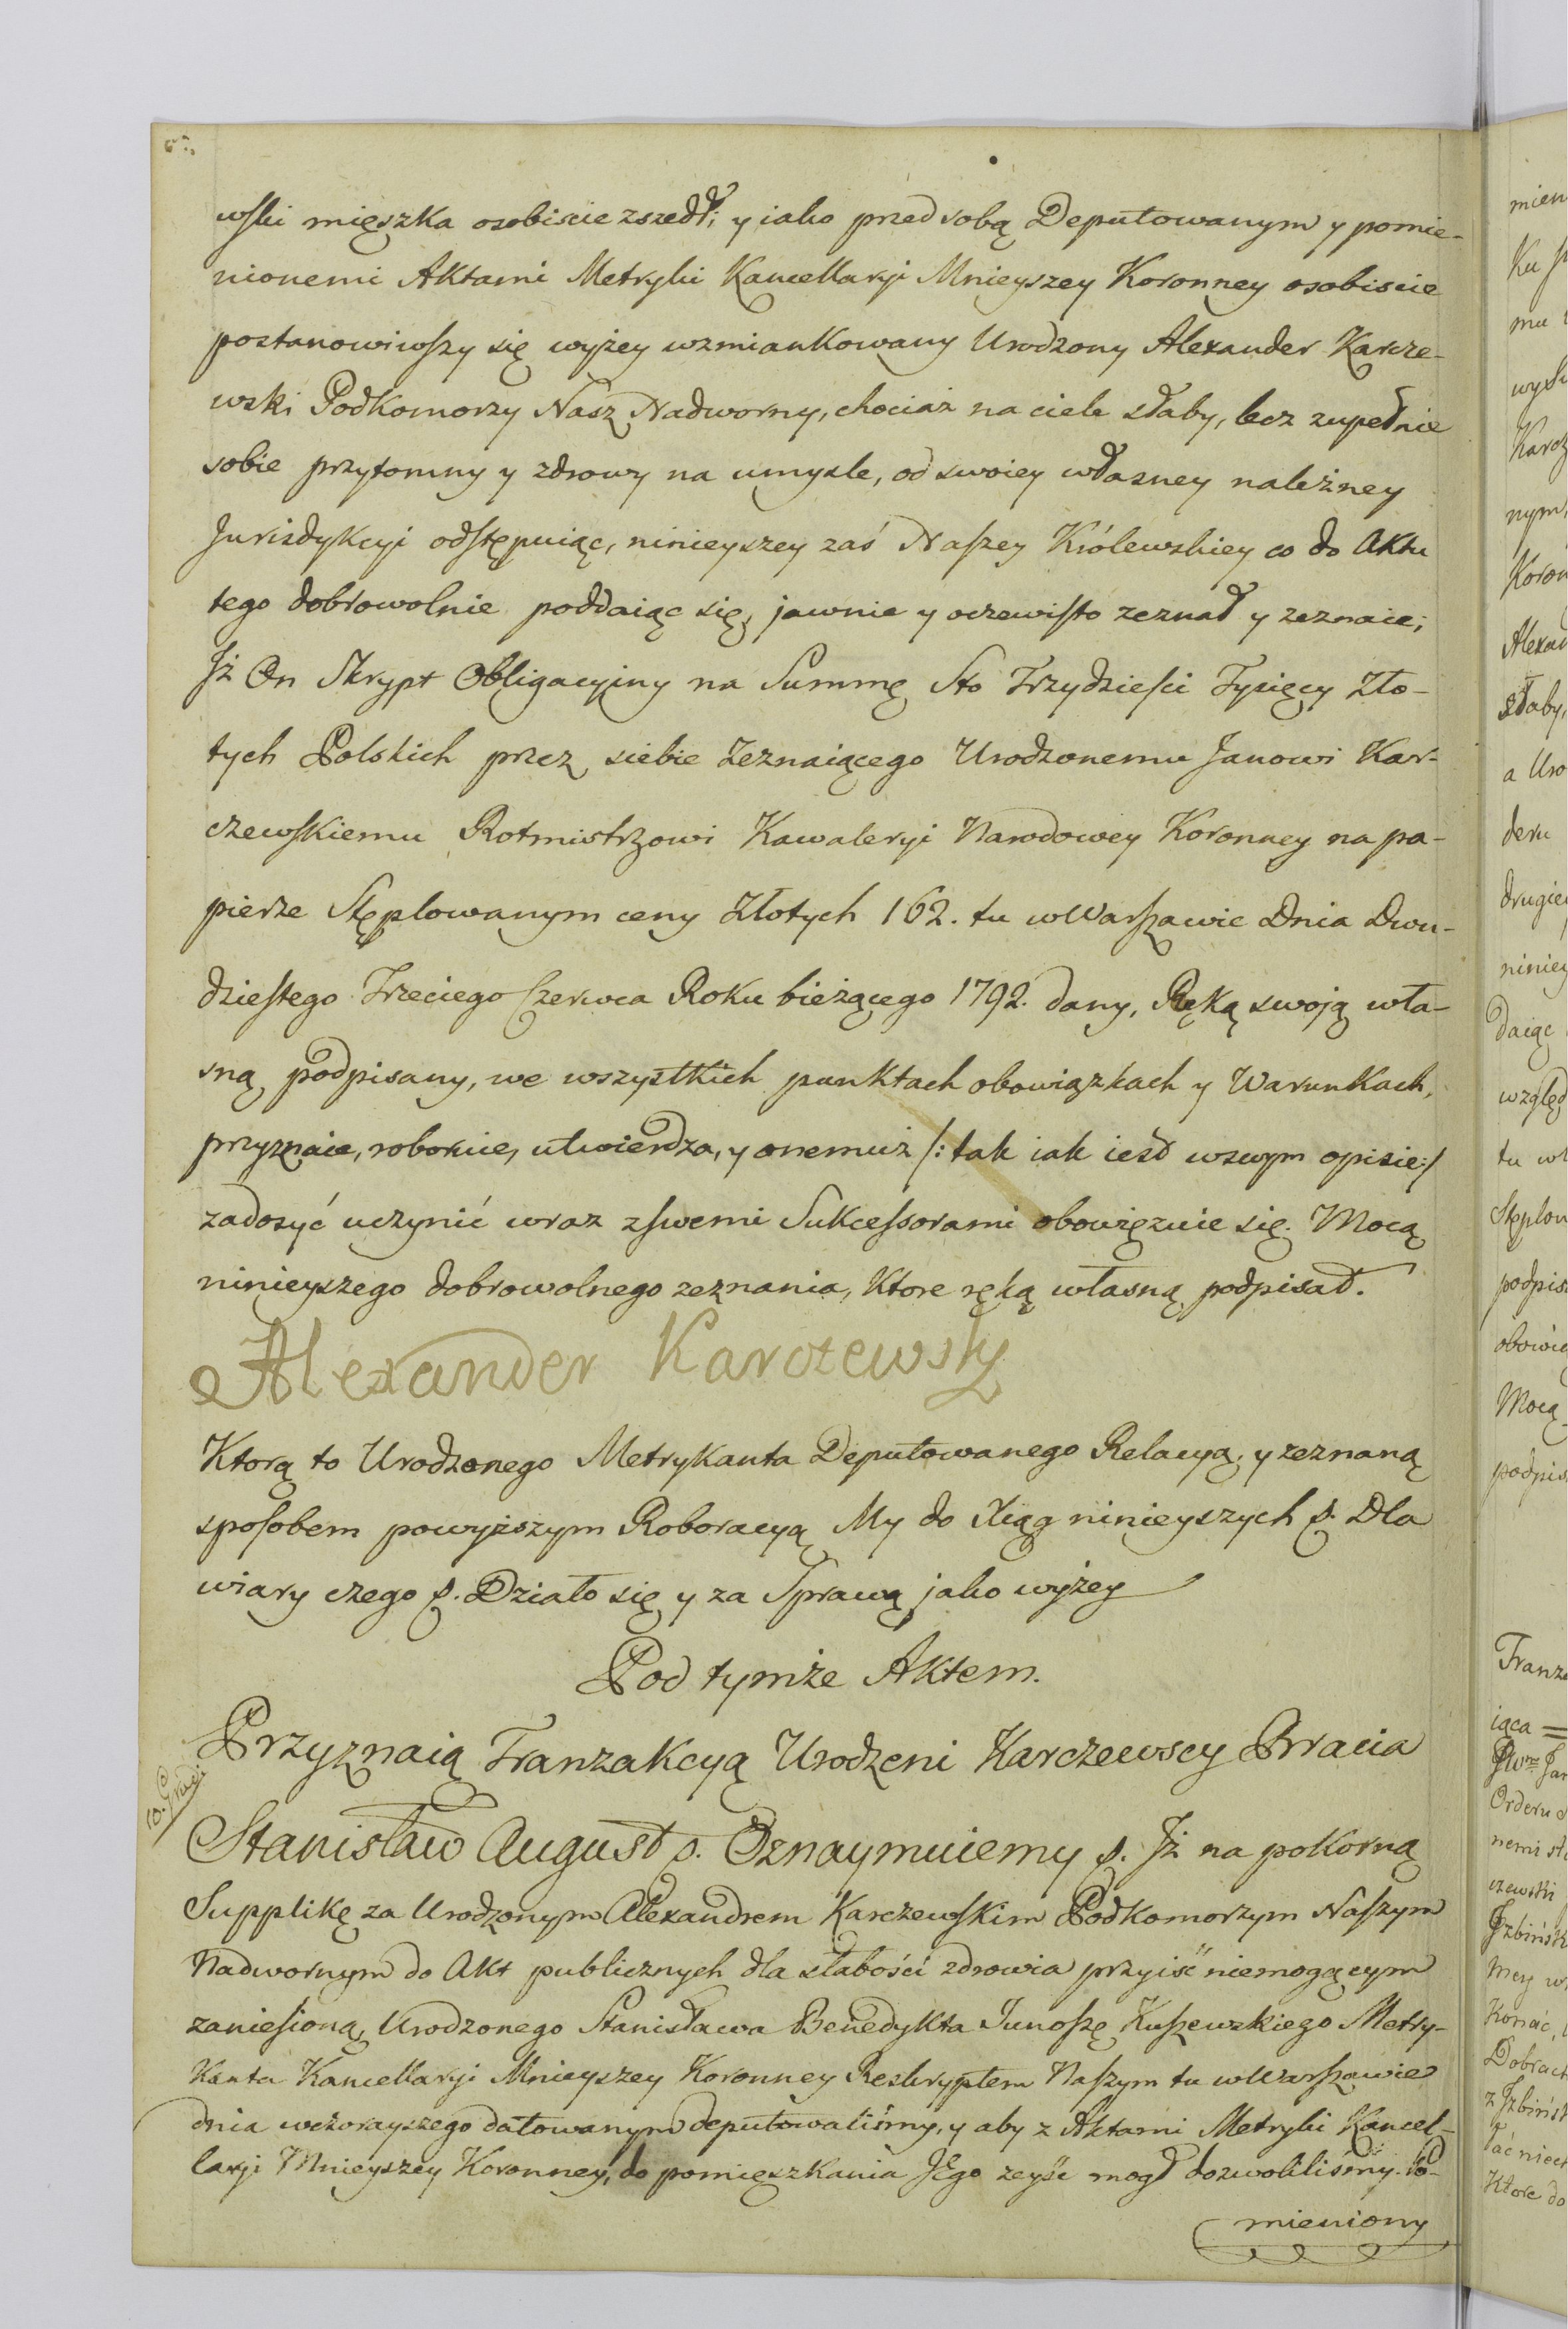 wski mięszka osobiscie zszedł; y iako przed sobą Deputowanym y pomie-
nionemi Aktami Metryki Kancellaryi Mnieyszey Koronney osobiscie
postanowiwszy się wyżey wzmiankowany Urodzony Alexander Karcze-
wski Podkomorzy Nasz Nadworny, chociaż na ciele słaby, lecz zupełnie
sobie przytomny y zdrowy na umysle, od swoiey własney należney
Jurisdykcyi odstępuiąc, ninieyszey zaś Naszey Królewskiey co do Aktu
tego dobrowolnie poddaiąc się, jawnie y oczewisto zeznał y zeznaie;
Jż On Skrypt Obligacyiny na Summę Sto Trzydziesci Tysięcy Zło-
tych Polskich przez siebie Zeznaiącego Urodzonemu Janowi Kar-
czewskiemu Rotmistrzowi Kawaleryi Narodowey Koronney na pa-
pierze Stęplowanym ceny Złotych 162. tu w Warszawie Dnia Dwu-
dziestego Trzeciego Czerwca Roku bieżącego 1792. dany, Ręką swoią wła-
sną podpisany, we wszystkich punktach obowiązkach y Warunkach,
przyznaie, roboruie, utwierdza, y onemuż /: tak iak iest wswym opisie :/
zadosyć uczynić wraz zswemi Sukcessorami obowięzuie się. Mocą
ninieyszego dobrowolnego zeznania, Ktore ręką własną podpisał.
Alexander Karczewsky
Ktorą to Urodzonego Metrykanta Deputowanego Relacyą, y zeznaną
sposobem powyższym Roboracyą My do Xiąg ninieyszych p. Dla
wiary czego p. Działo się y za Sprawą jako wyżey
Pod tymże Aktem.
Przyznaią Tranzakcyą Urodzeni Karczewscy Bracia
Stanisław August p. Oznaymuiemy p. Jż na pokorną
Supplikę za Urodzonym Alexandrem Karczewskim Podkomorzym Naszym
Nadwornym do Akt publicznych dla słabości zdrowia przyiść niemogącym
zaniesioną, Urodzonego Stanisława Benedykta Junoszę Kuszewskiego Metry-
kanta Kancellaryi Mnieyszey Koronney Reskryptem Naszym tu w Warszawie
dnia wczorayszego datowanym deputowaliśmy, y aby z Aktami Metryki Kancel-
laryi Mnieyszey Koronney, do pomięszkania JEgo zeyść mogł dozwoliliśmy. Po-
mieniony
mien
Ku
mu
Karcz
nym
Koron
Alexan
słaby,
a Uro
deru
drugie
niniey
daiąc
względ
tu w
Stęplow
podpis
obowią
Mocą
podpis
Tranza
iąca =
Orderu
nemi
czewski
Dobrach
Ktore do